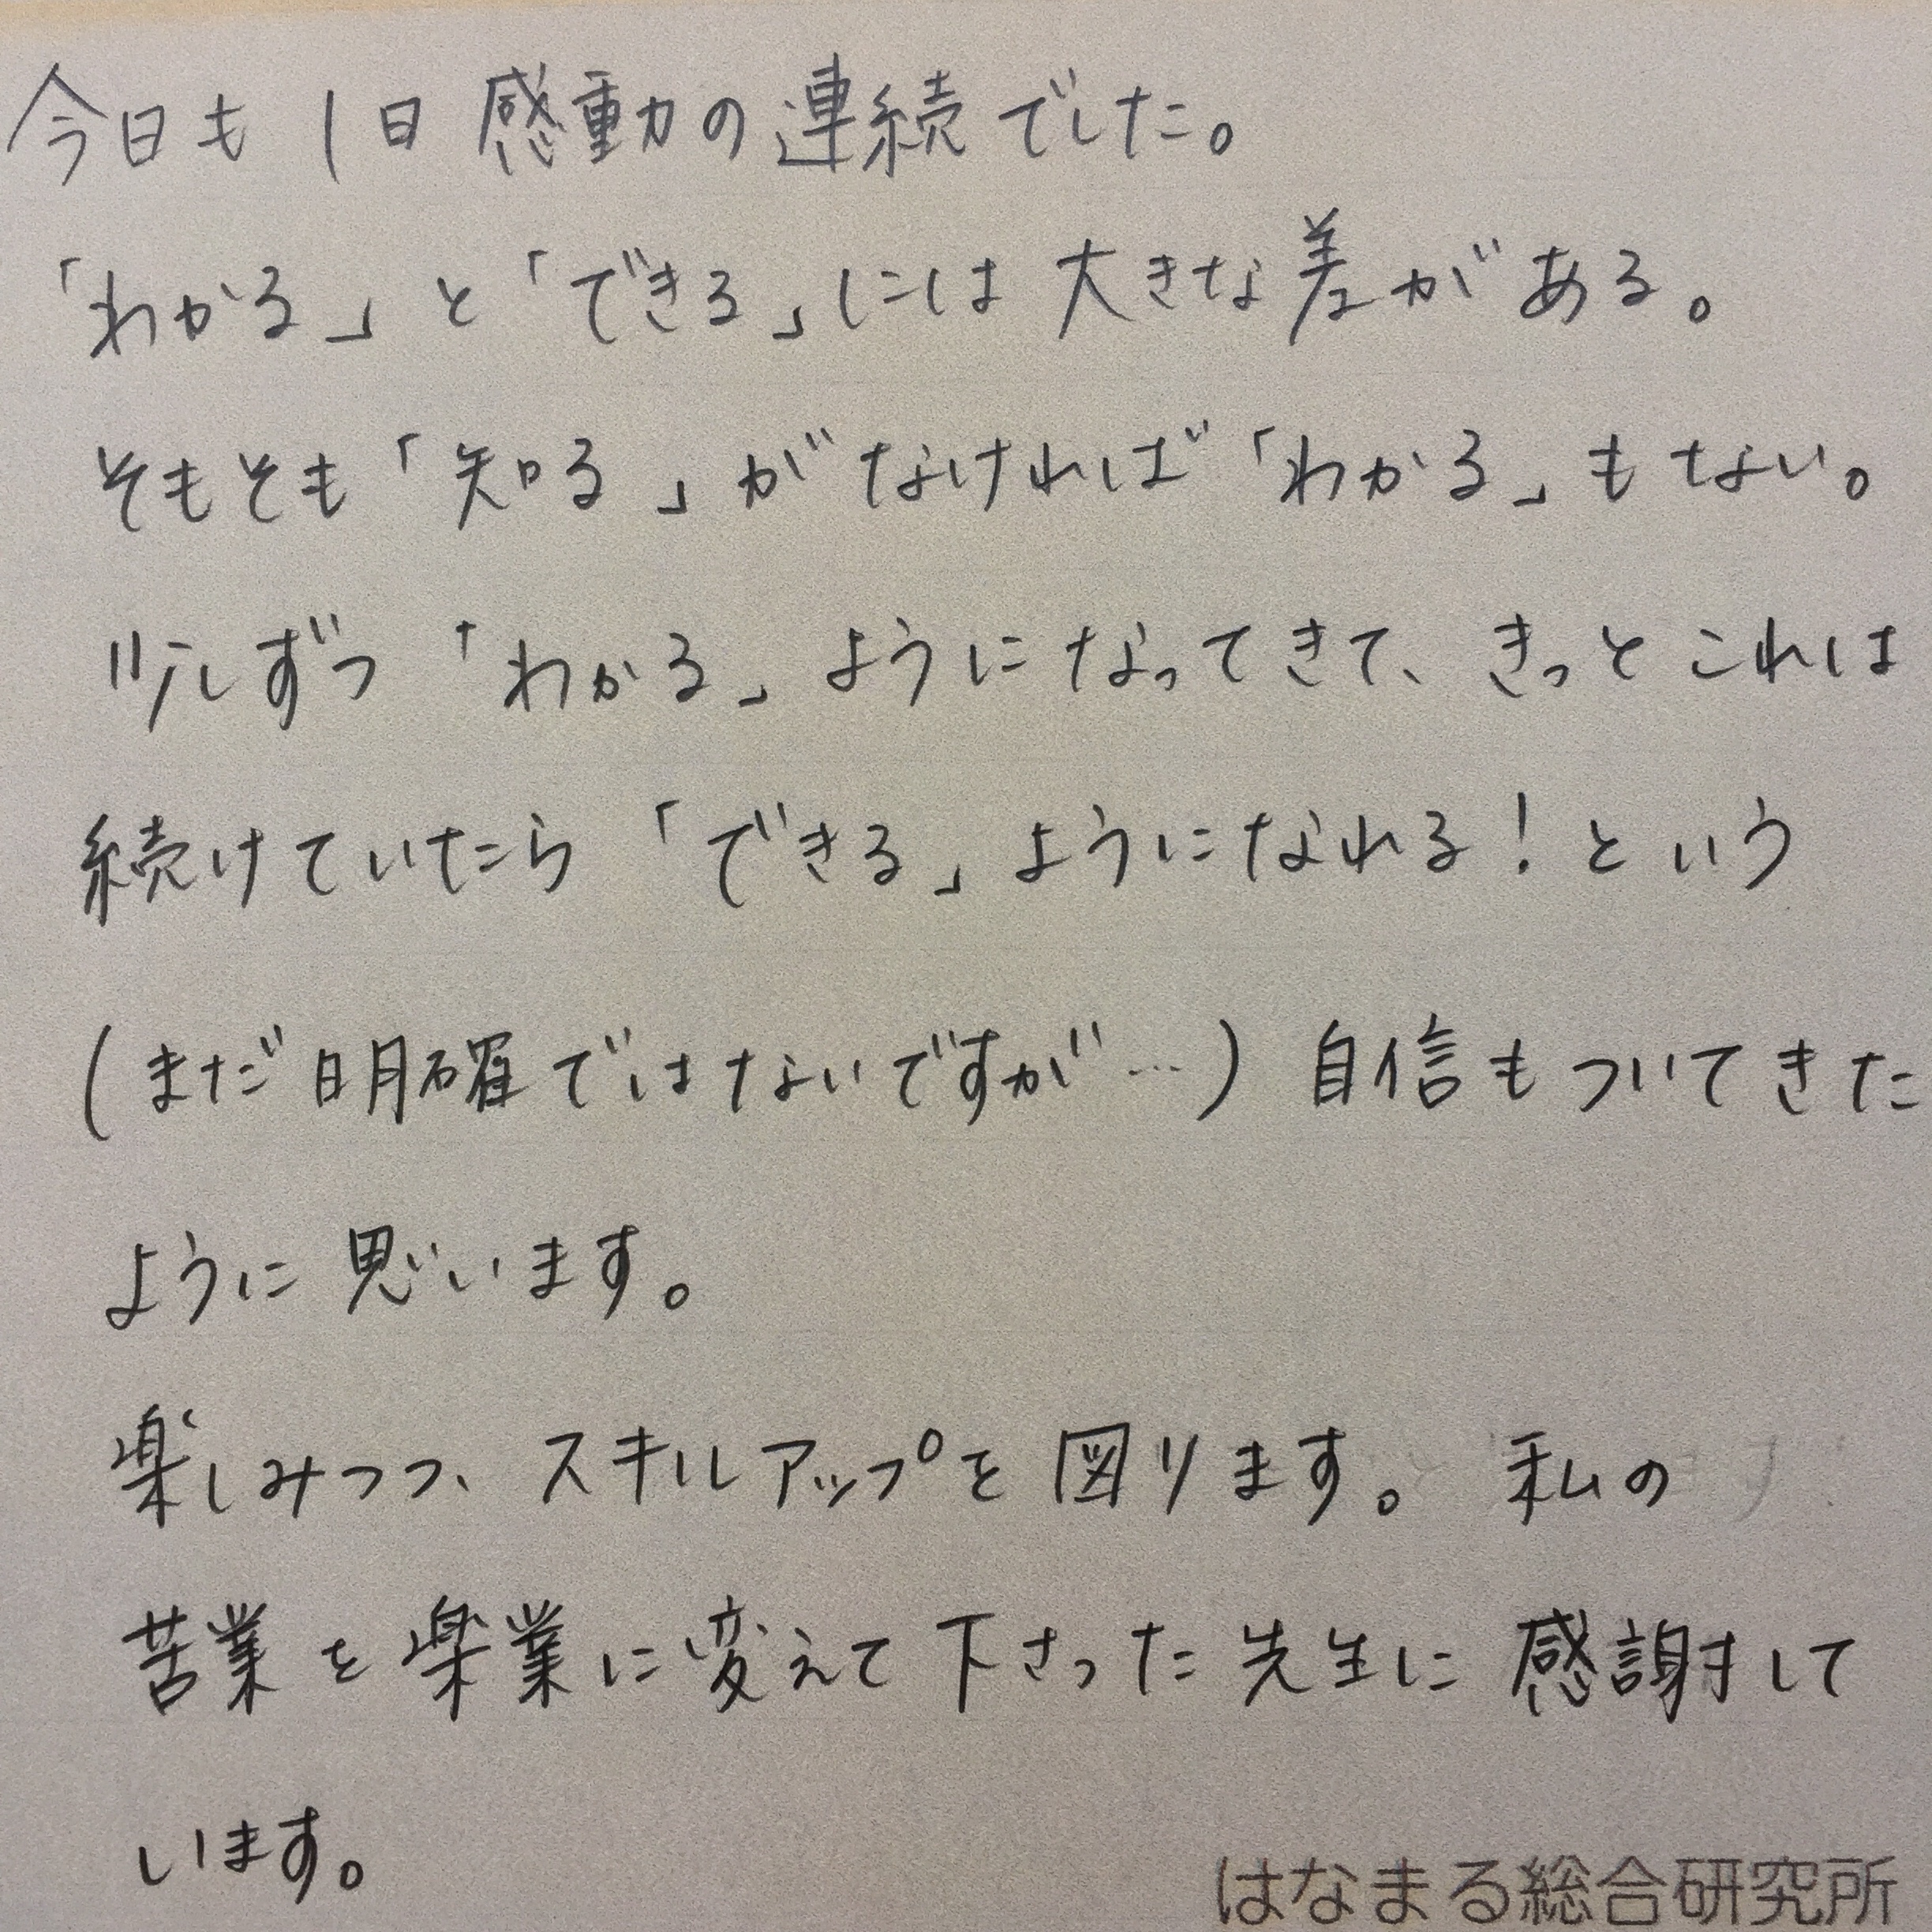 今日も1日感動の連続でした。
「わかる」と「できる」には大きな差がある。
そもそも「知る」がなければ「わかる」もない。
少しずつ「わかる」ようになってきて、きっとこれは
続けていたら「できる」ようになれる！という
(まだ明確ではないですが…)自信もついてきた
ように思います。
楽しみつつ、スキルアップを図ります。私の
苦業を楽業に変えて下さった先生に感謝して
います。
はなまる総合研究所